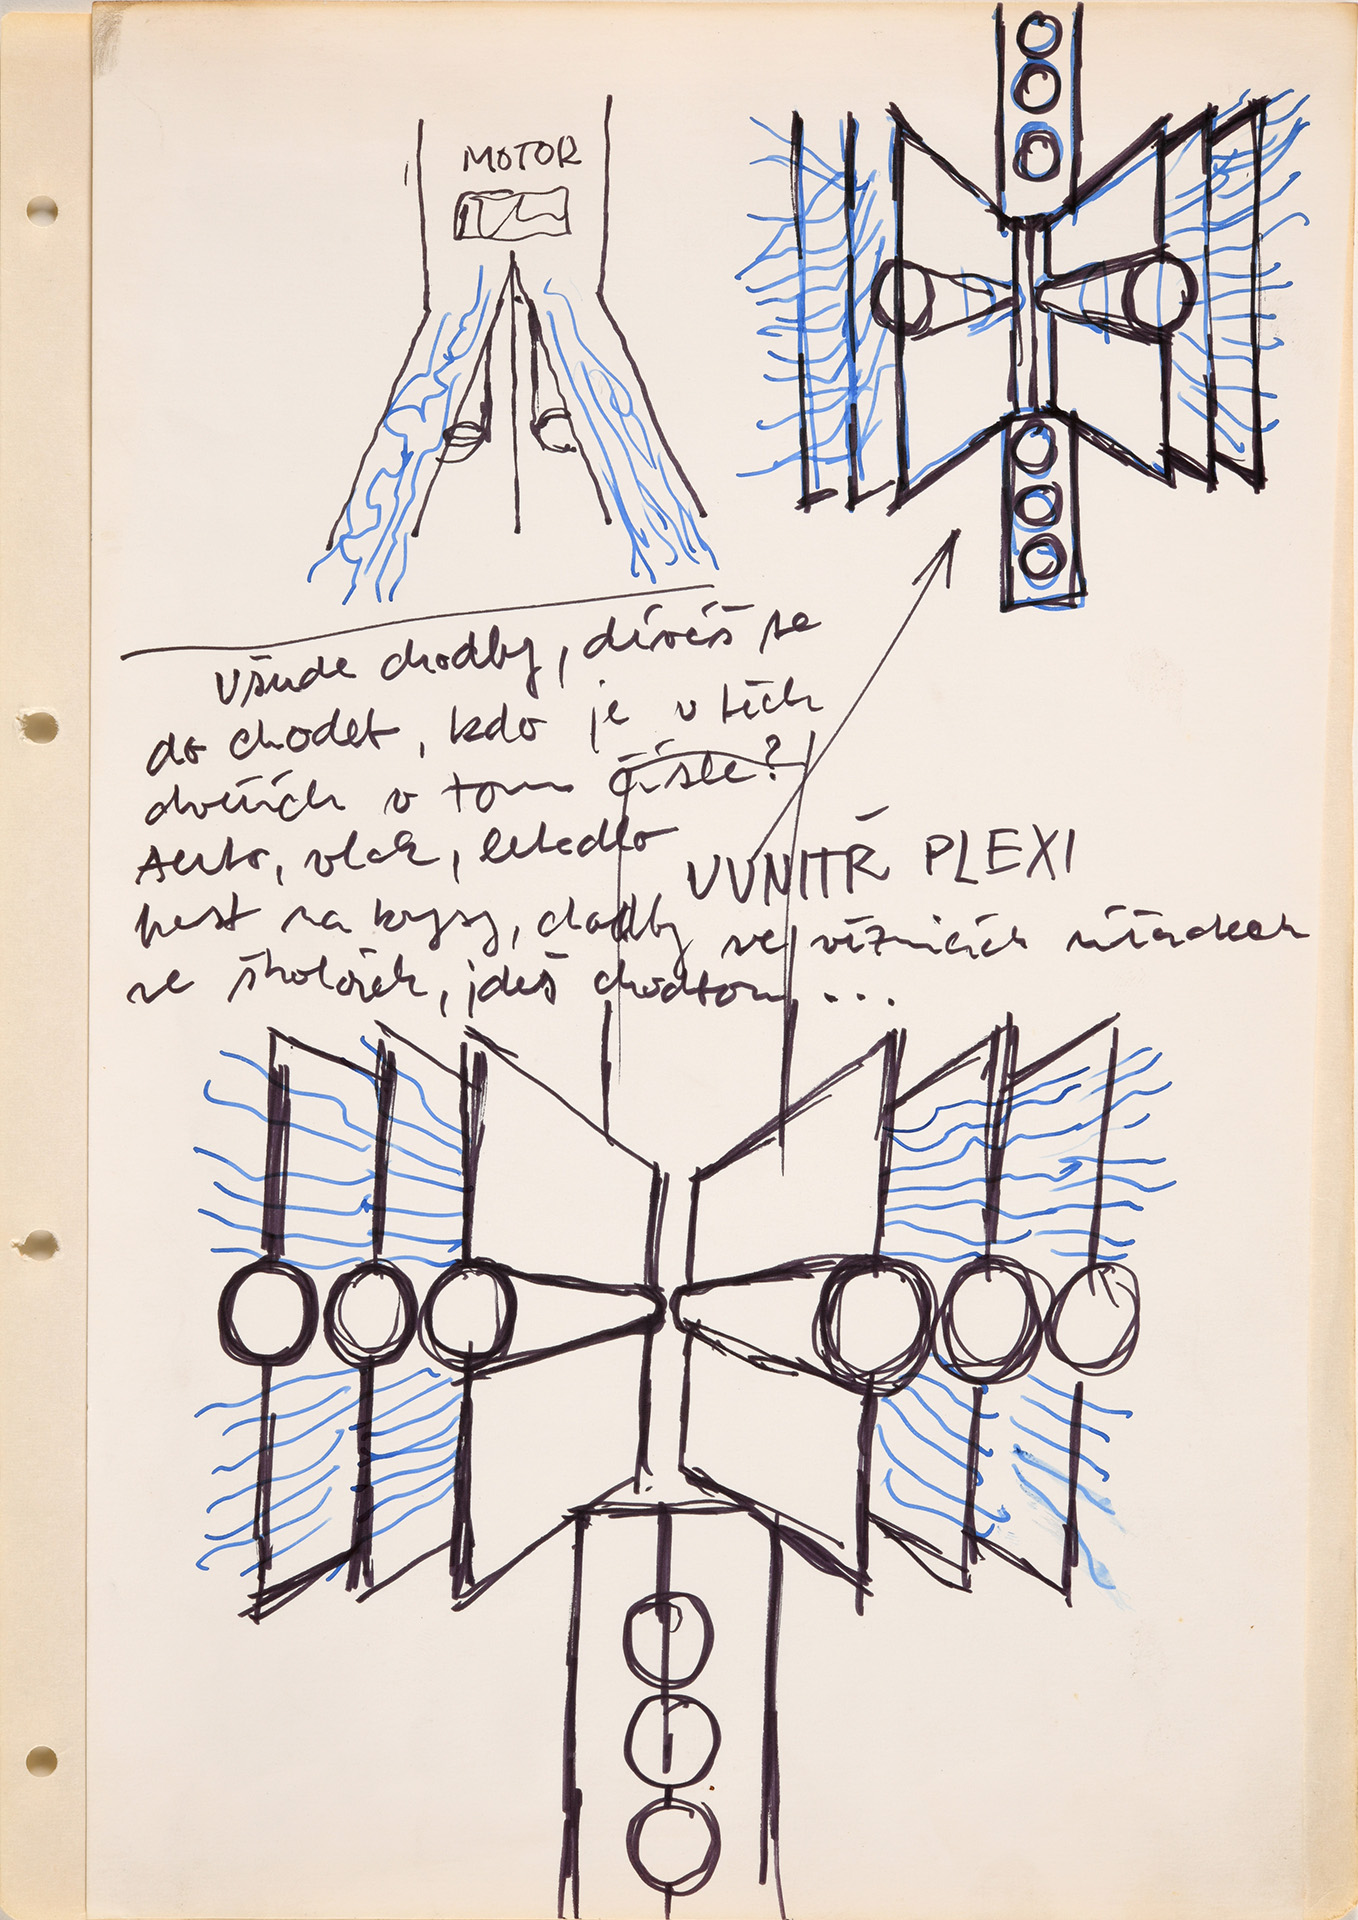 MOTOR
Všude chodby, díváš se
do chodeb, kdo je v těch
dveřích v tom čísle?
Auto, vlak, letadlo
past na krysy, chodby ve věznicích úřadech
ve školách, jdeš chodbou ...
UVNITŘ PLEXI